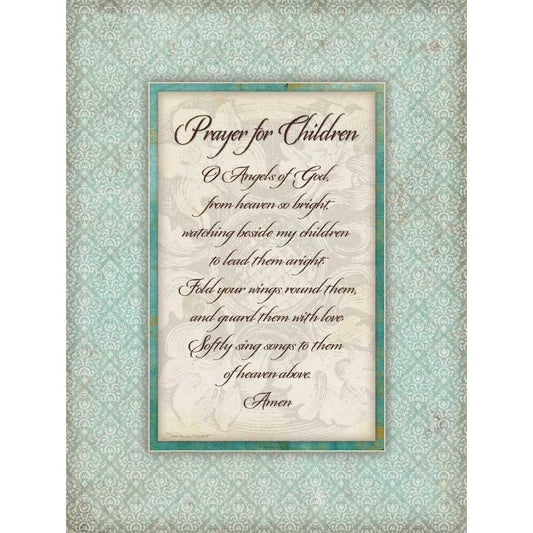 Prayer for Children
O Angels of God,
from heaven so bright,
watching beside my children
to lead them aright.
Fold your wings round them,
and guard them with love.
Softly sing songs to them
of heaven above.
Amen